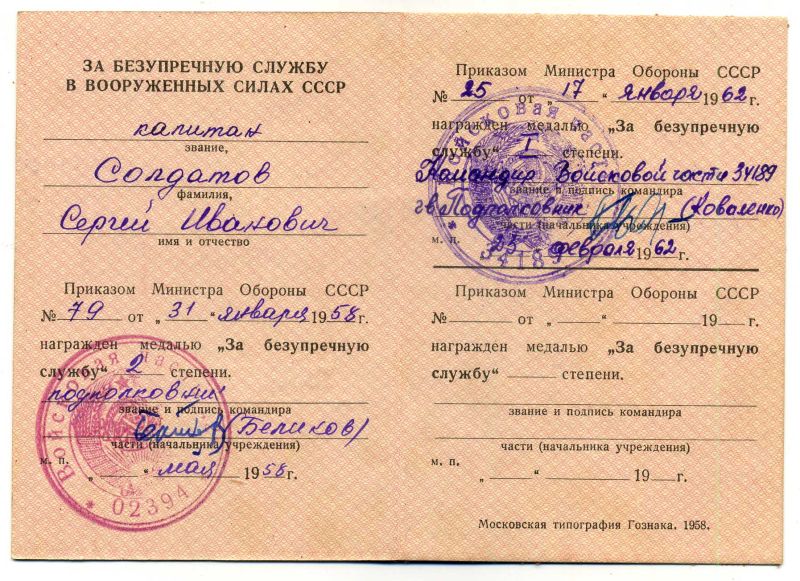 ЗА БЕЗУПРЕЧНУЮ СЛУЖБУ
В ВООРУЖЕННЫХ СИЛАХ СССР
капитан
звание,
Солдатов
фамилия,
Сергей Иванович
имя и отчество
Приказом Министра Обороны СССР
№ 79 от „31“ января 1958 г.
награжден медалью „За безупречную
службу“ 2 степени.
подполковник
звание и подпись командира
(Беликов)
части (начальника учреждения)
м. п.
„ “ мая 1958 г.
* Войсковая час
02394
Приказом Министра Обороны СССР
№ 25 от „17“ января 1962 г.
награжден медалью „За безупречную
службу“ I степени.
Командир Войсковой части 34189
звание и подпись командира
гв Подполковник (Коваленко)
части (начальника учреждения)
м. п. 23 февраля 1962 г.
* Войсковая част
34189
Приказом Министра Обороны СССР
№ от „ “ 19 г.
награжден медалью „За безупречную
службу“ степени.
звание и подпись командира
части (начальника учреждения)
м. п.
„ “ 19 г.
Московская типография Гознака. 1958.